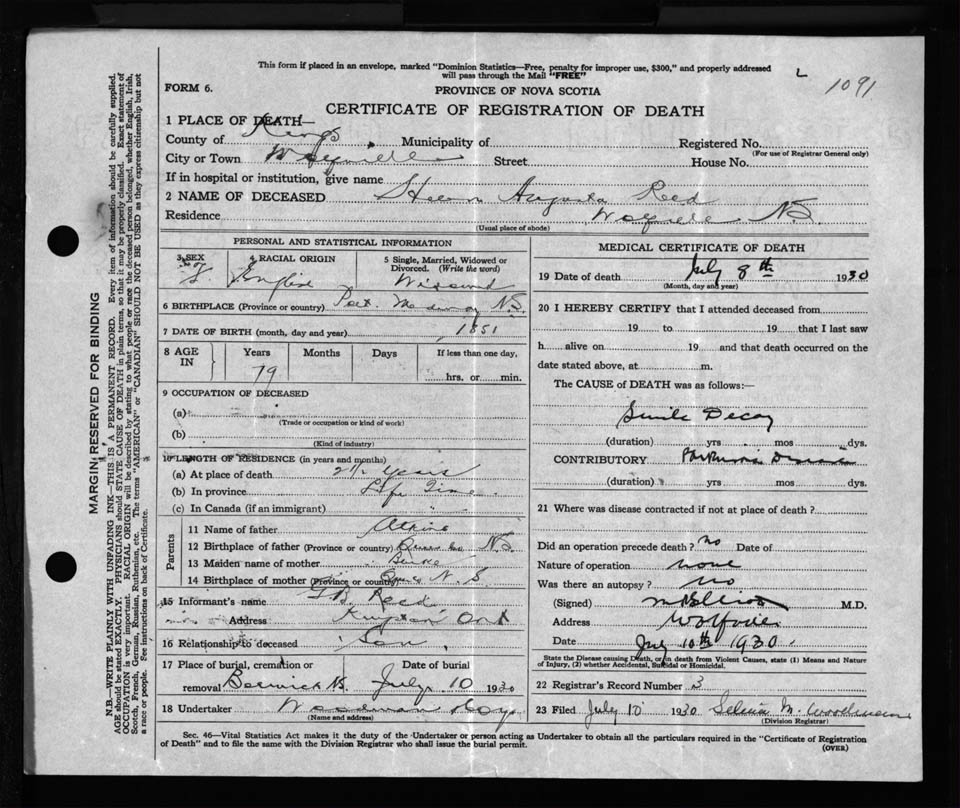 This form if placed in an envelope, marked "Dominion Statistics—Free, penalty for improper use, $300," and properly addressed
will pass through the Mail "FREE"
1091
FORM 6.
PROVINCE OF NOVA SCOTIA
CERTIFICATE OF REGISTRATION OF DEATH
1 PLACE OF DEATH—
County of Kings Municipality of Registered No.
(For use of Registrar General only)
City or Town Wolfville Street House No.
If in hospital or institution, give name
2 NAME OF DECEASED Helen Augusta Reed
Residence Wolfville NS
(Usual place of abode)
PERSONAL AND STATISTICAL INFORMATION
3 SEX 4 RACIAL ORIGIN 5 Single, Married, Widowed or Divorced. (Write the word)
F. English Widowed
6 BIRTHPLACE (Province or country) Port Medway N.S.
7 DATE OF BIRTH (month, day and year) 1851
8 AGE IN Years Months Days If less than one day,
79 hrs. or min.
9 OCCUPATION OF DECEASED
(a)
(Trade or occupation or kind of work)
(b)
(Kind of industry)
10 LENGTH OF RESIDENCE (in years and months)
(a) At place of death 2½ years
(b) In province Life Time
(c) In Canada (if an immigrant)
Parents
11 Name of father
12 Birthplace of father (Province or country) N.S.
13 Maiden name of mother
14 Birthplace of mother (Province or country) N.S.
15 Informant's name Reed
Address Ont
16 Relationship to deceased Son
17 Place of burial, cremation or removal Date of burial
Berwick NS July 10 1930
18 Undertaker Woodman
(Name and address)
MEDICAL CERTIFICATE OF DEATH
19 Date of death July 8th 1930
(Month, day and year)
20 I HEREBY CERTIFY that I attended deceased from
19 to 19 that I last saw
h alive on 19 and that death occurred on the
date stated above, at m.
The CAUSE of DEATH was as follows:—
Senile Decay
(duration) yrs. mos. dys.
CONTRIBUTORY Parkinson's Disease
(duration) yrs. mos. dys.
21 Where was disease contracted if not at place of death?
Did an operation precede death? no Date of
Nature of operation none
Was there an autopsy? no
(Signed) M.D.
Address Wolfville
Date July 10th 1930
State the Disease causing Death, or in death from Violent Causes, state (1) Means and Nature
of Injury, (2) whether Accidental, Suicidal or Homicidal.
22 Registrar's Record Number 3
23 Filed July 10 1930 Selina M. Woodman
(Division Registrar)
Sec. 46—Vital Statistics Act makes it duty of the Undertaker or person acting as Undertaker to obtain all the particulars required in the "Certificate of Registration
of Death" and to file the same with the Division Registrar who shall issue the burial permit.
(OVER)
MARGIN RESERVED FOR BINDING
N.B.—WRITE PLAINLY WITH UNFADING INK—THIS IS A PERMANENT RECORD. Every item of information should be carefully supplied.
AGE should be stated EXACTLY. PHYSICIANS should STATE CAUSE OF DEATH in plain terms, so that it may be properly classified. Exact statement of
OCCUPATION is very important. RACIAL ORIGIN will be described by stating to what people or race the deceased person belonged, whether English, Irish,
Scotch, French, German, Russian, Ruthenian, etc. The terms "AMERICAN" or "CANADIAN" SHOULD NOT BE USED as they express citizenship but not
a race or people. See instructions on back of Certificate.